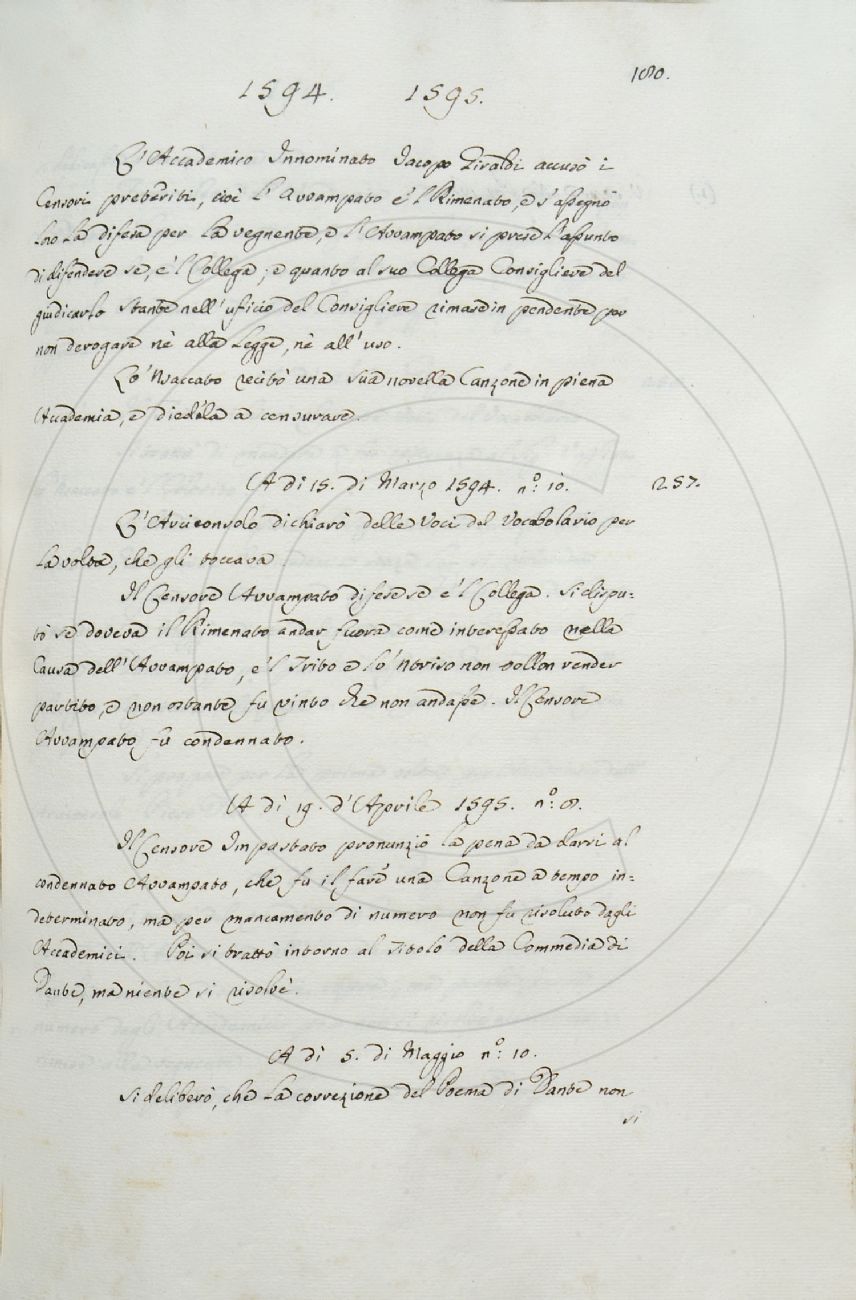 180.
1594. 1595.
L'Accademico Innominato Jacopo Giraldi accusò i
Censori preteriti, cioè l'Avvampato e 'l Rimenato, e s'assegnò
loro la difesa per la vegnente, e l'Avvampato si prese l'assunto
di difendere se, e 'l Collega; e quanto al suo Collega Consigliere del
giudicarlo stante nell'uficio del Consigliere rimase in pendente per
non derogare nè alla Legge, nè all'uso.
Lo 'Nsaccato recitò una sua novella Canzone in piena
Accademia, e diedela a censurare.
A di 15. di Marzo 1594. nº: 10. 257.
L'Arciconsolo dichiarò delle Voci del Vocabolario per
la volta, che gli toccava.
Il Censore Avvampato difese se e 'l Collega. Si dispu=
tò se doveva il Rimenato andar fuora come interessato nella
Causa dell'Avvampato, e 'l Trito e lo 'Ntriso non vollon render
partito, e non ostante fu vinto che non andasse. Il Censore
Avvampato fu condennato.
A dì 19. d'Aprile 1595. nº: 8.
Il Censore Impastato pronunziò la pena da darsi al
condennato Avvampato, che fu il fare una Canzone a tempo in=
determinato, ma per mancamento di numero non fu risoluto dagli
Accademici. Poi si trattò intorno al Titolo della Commedia di
Dante, ma niente si risolvè.
A dì 5. di Maggio nº: 10.
Si deliberò, che la correzione del Poema di Dante non
si